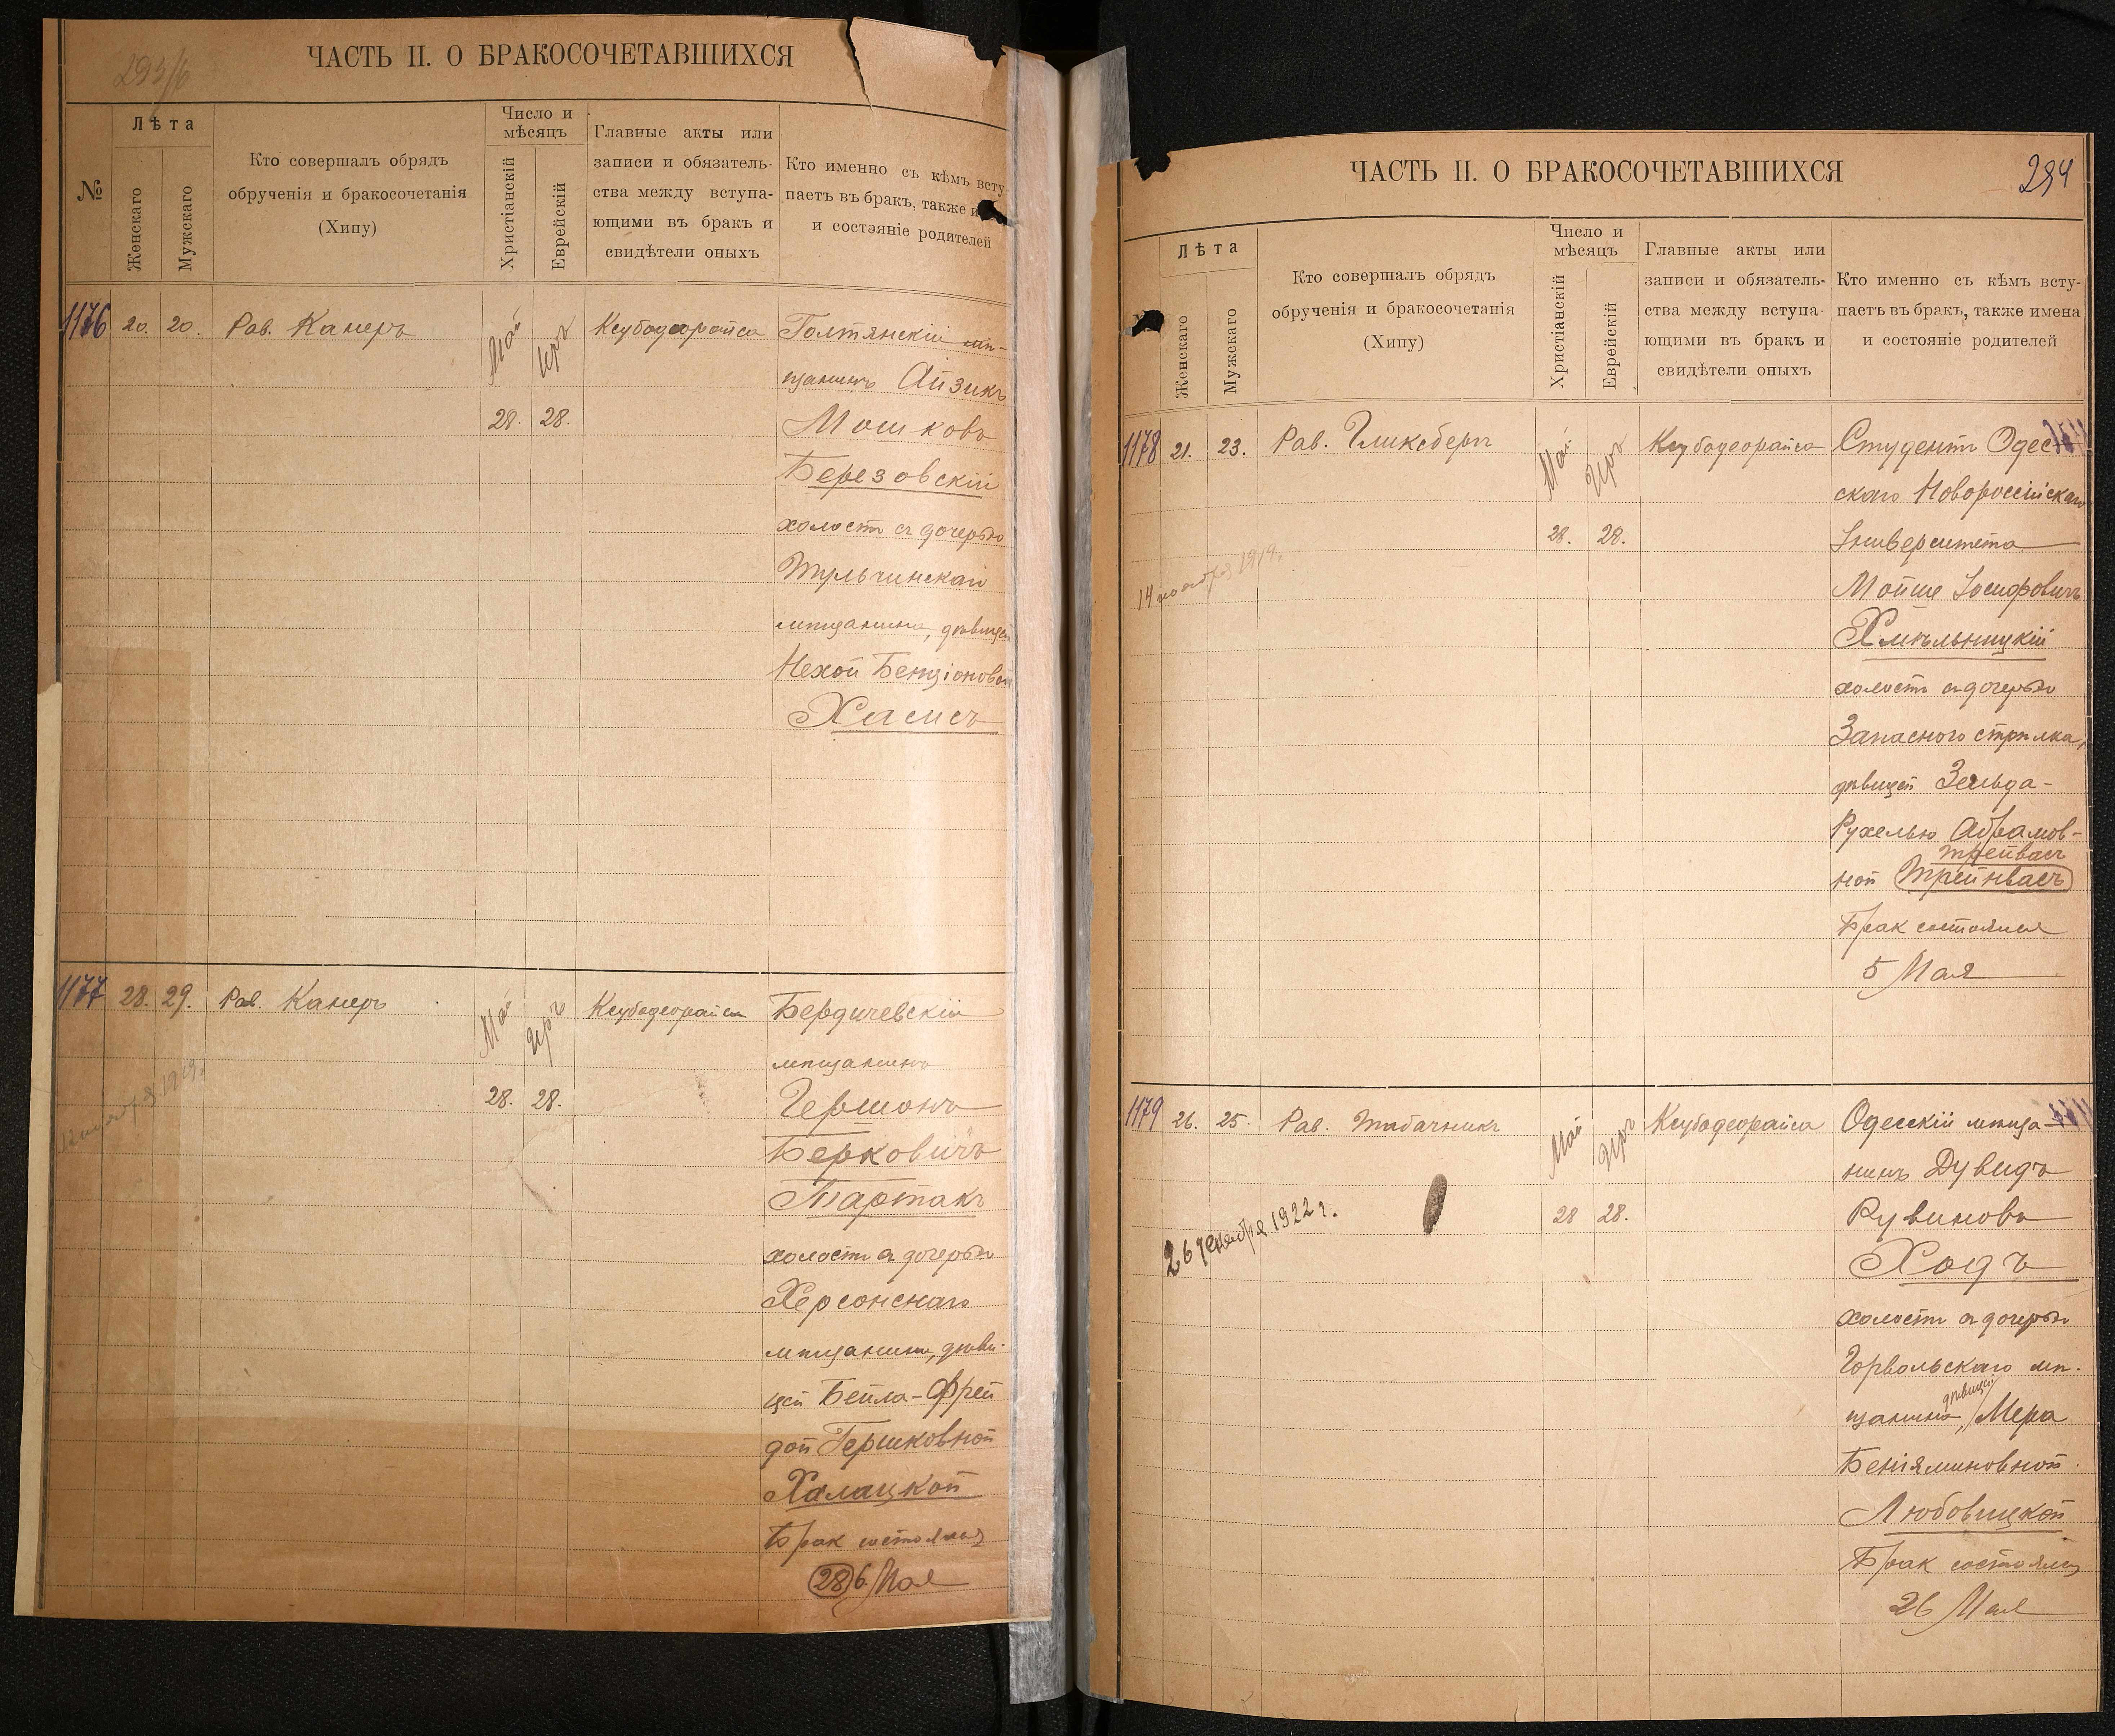 293/б
ЧАСТЬ II. О БРАКОСОЧЕТАВШИХСЯ
№
Лѣта
Женскаго
Мужскаго
Кто совершалъ обрядъ
обрученія и бракосочетанія
(Хипу)
Число и
мѣсяцъ
Христіанскій
Еврейскій
Главные акты или
записи и обязатель-
ства между вступа-
ющими въ бракъ и
свидѣтели оныхъ
Кто именно съ кѣмъ всту
паетъ въ бракъ, также и
и состояніе родителей
1176 20. 20. Рав. Канеръ Май Іръ Ксубодеорайса Голтянскій мѣ-
щанинъ Айзикъ
28. 28. Мошковъ
Березовскій
холост съ дочерью
Тульчинскаго
мѣщанина, дѣвицей
Нехой Бенціоновой
Хасисъ
1177 28. 29. Рав. Канеръ Май Іръ Ксубодеорайса Бердичевскій
мѣщанинъ
28. 28. Гершонъ
Берковичъ
Тартакъ
холостъ съ дочерью
Херсонскаго
мѣщанина, дѣви-
цей Бейла-Фрей
дой Гершковной
Халацкой
Брак состоялся
(28) 6 Мая
ЧАСТЬ II. О БРАКОСОЧЕТАВШИХСЯ
294
Лѣта
Женскаго
Мужскаго
Кто совершалъ обрядъ
обрученія и бракосочетанія
(Хипу)
Число и
мѣсяцъ
Христіанскій
Еврейскій
Главные акты или
записи и обязатель-
ства между вступа-
ющими въ бракъ и
свидѣтели оныхъ
Кто именно съ кѣмъ всту-
паетъ въ бракъ, также имена
и состояніе родителей
1178 21. 23. Рав. Гликсберг Май Іръ Ксубодеорайса Студентъ Одес-
скаго Новороссійскаго
28. 28. Университета
14 ноября 1919.
Мойше Іосифовичъ
Хмѣльницкій
холостъ съ дочерью
Запаснаго стрѣлка,
дѣвицей Зельда-
Рухелью Абрамов-
трейвасъ
ной Трейнвасъ
Брак состоялся
5 Мая
1179 26. 25. Рав. Табачникъ Май Іръ Ксубодеорайса Одесскій мѣща-
нинъ Дувидъ
28 28. Рувиновъ
26 декабря 1922 г.
Ходъ
холостъ съ дочерью
Горвольскаго мѣ-
дѣвицей
щанина, Мера
Беніяминовной
Любовицкой
Брак состоялся
26 Мая